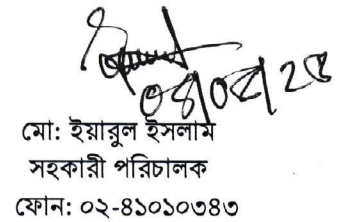 ০৪/০৪/২৫
মো: ইয়ারুল ইসলাম
সহকারী পরিচালক
ফোন: ০২-৪১০১০৩৪৩